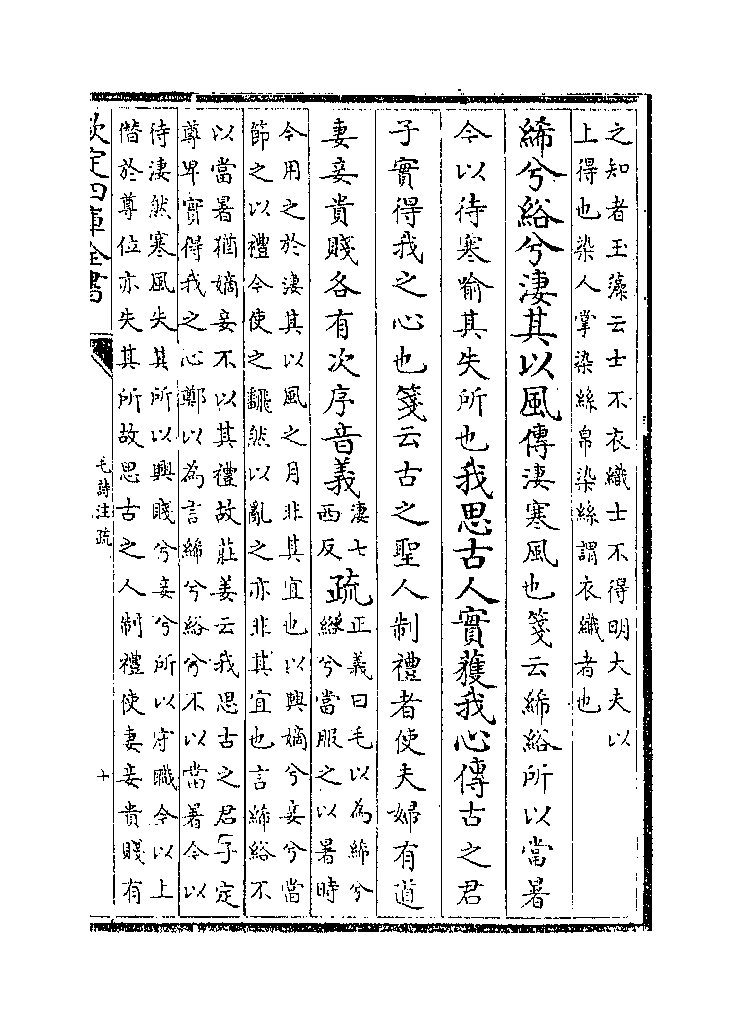 之知者玉藻云士不衣織士不得明大夫以
上得也染人掌染絲帛染絲謂衣織者也
絺兮綌兮淒其以風傳淒寒風也箋云絺綌所以當暑
今以待寒喻其失所也我思古人實獲我心傳古之君
子實得我之心也箋云古之聖人制禮者使夫婦有道
妻妾貴賤各有次序音義淒七
西反疏正義曰毛以為絺兮
綌兮當服之以暑時
今用之於淒其以風之月非其宜也以興嫡兮妾兮當
節之以禮今使之翻然以亂之亦非其宜也言絺綌不
以當暑猶嫡妾不以其禮故莊姜云我思古之君子定
尊卑實得我之心鄭以為言絺兮綌兮不以當暑今以
待淒然寒風失其所以興賤兮妾兮所以守職今以上
僭於尊位亦失其所故思古之人制禮使妻妾貴賤有
欽定四庫全書
毛詩注疏
十